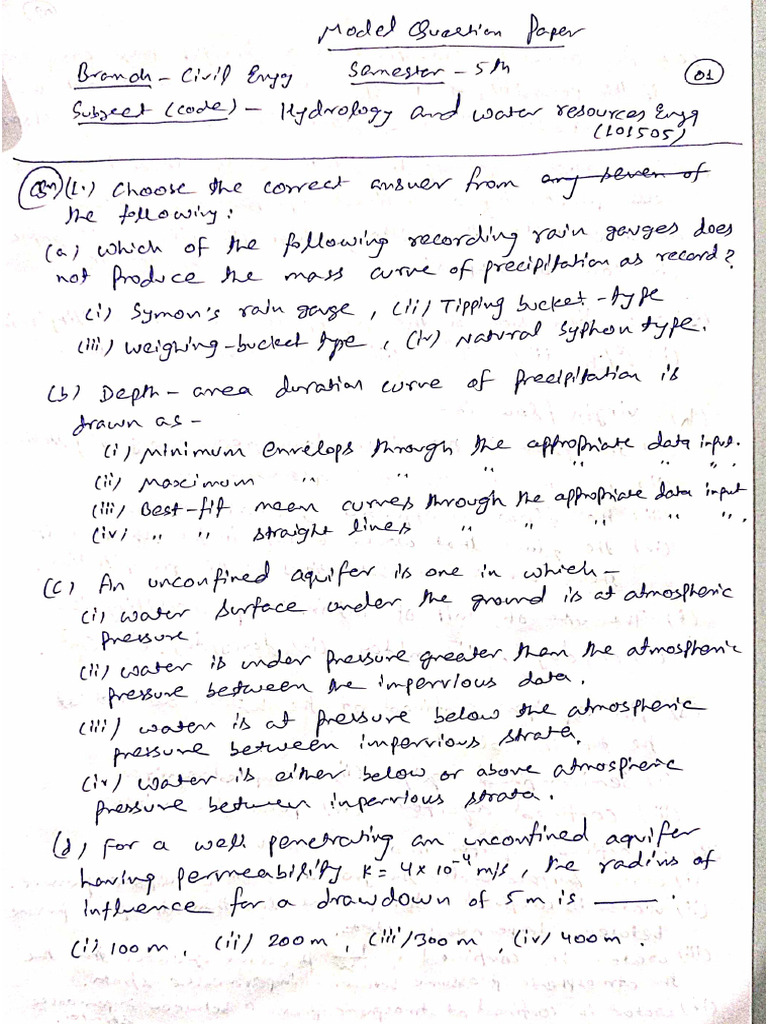 Model Question Paper
Branch - Civil Engg Semester - 5th
01
Subject (code) - Hydrology and water resources Engg
(101505)
Qn) (1.) Choose the correct answer from any seven of
the following:
(a) which of the following recording rain gauges does
not produce the mass curve of precipitation as record?
(i) Symon's rain gauge, (ii) Tipping bucket-type
(iii) weighing-bucket type, (iv) Natural Syphon type.
(b) Depth-area duration curve of precipitation is
drawn as -
(i) Minimum envelops through the appropriate data input.
(ii) Maximum " " " " " ".
(iii) Best-fit mean curves through the appropriate data input
(iv) " " straight lines " " " " ".
(c) An unconfined aquifer is one in which -
(i) water surface under the ground is at atmospheric
pressure
(ii) water is under pressure greater than the atmospheric
pressure between the impervious data.
(iii) water is at pressure below the atmospheric
pressure between impervious strata.
(iv) water is either below or above atmospheric
pressure between impervious strata.
(d) For a well penetrating an unconfined aquifer
having permeability K = 4 x 10⁻⁴ m/s, the radius of
influence for a drawdown of 5 m is ____.
(i) 100 m, (ii) 200 m, (iii) 300 m, (iv) 400 m.